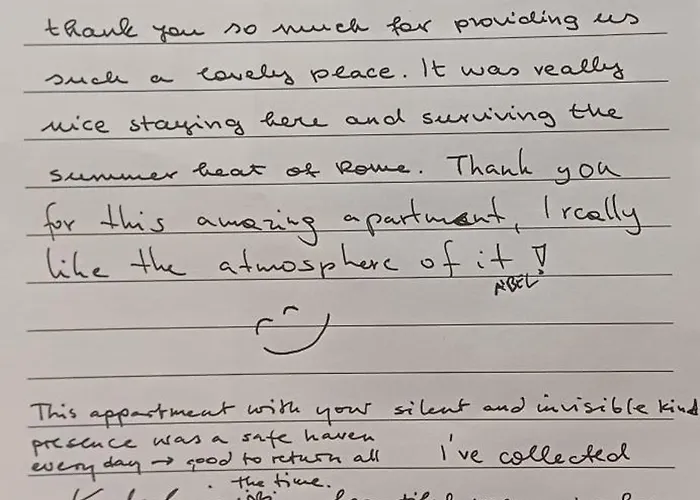 thank you so much for providing us
such a lovely place. It was really
nice staying here and surviving the
summer heat of Rome. Thank you
for this amazing apartment, I really
like the atmosphere of it!
ABEL
This appartment with your silent and invisible kind
presence was a safe haven
every day → good to return all
the time.
I've collected